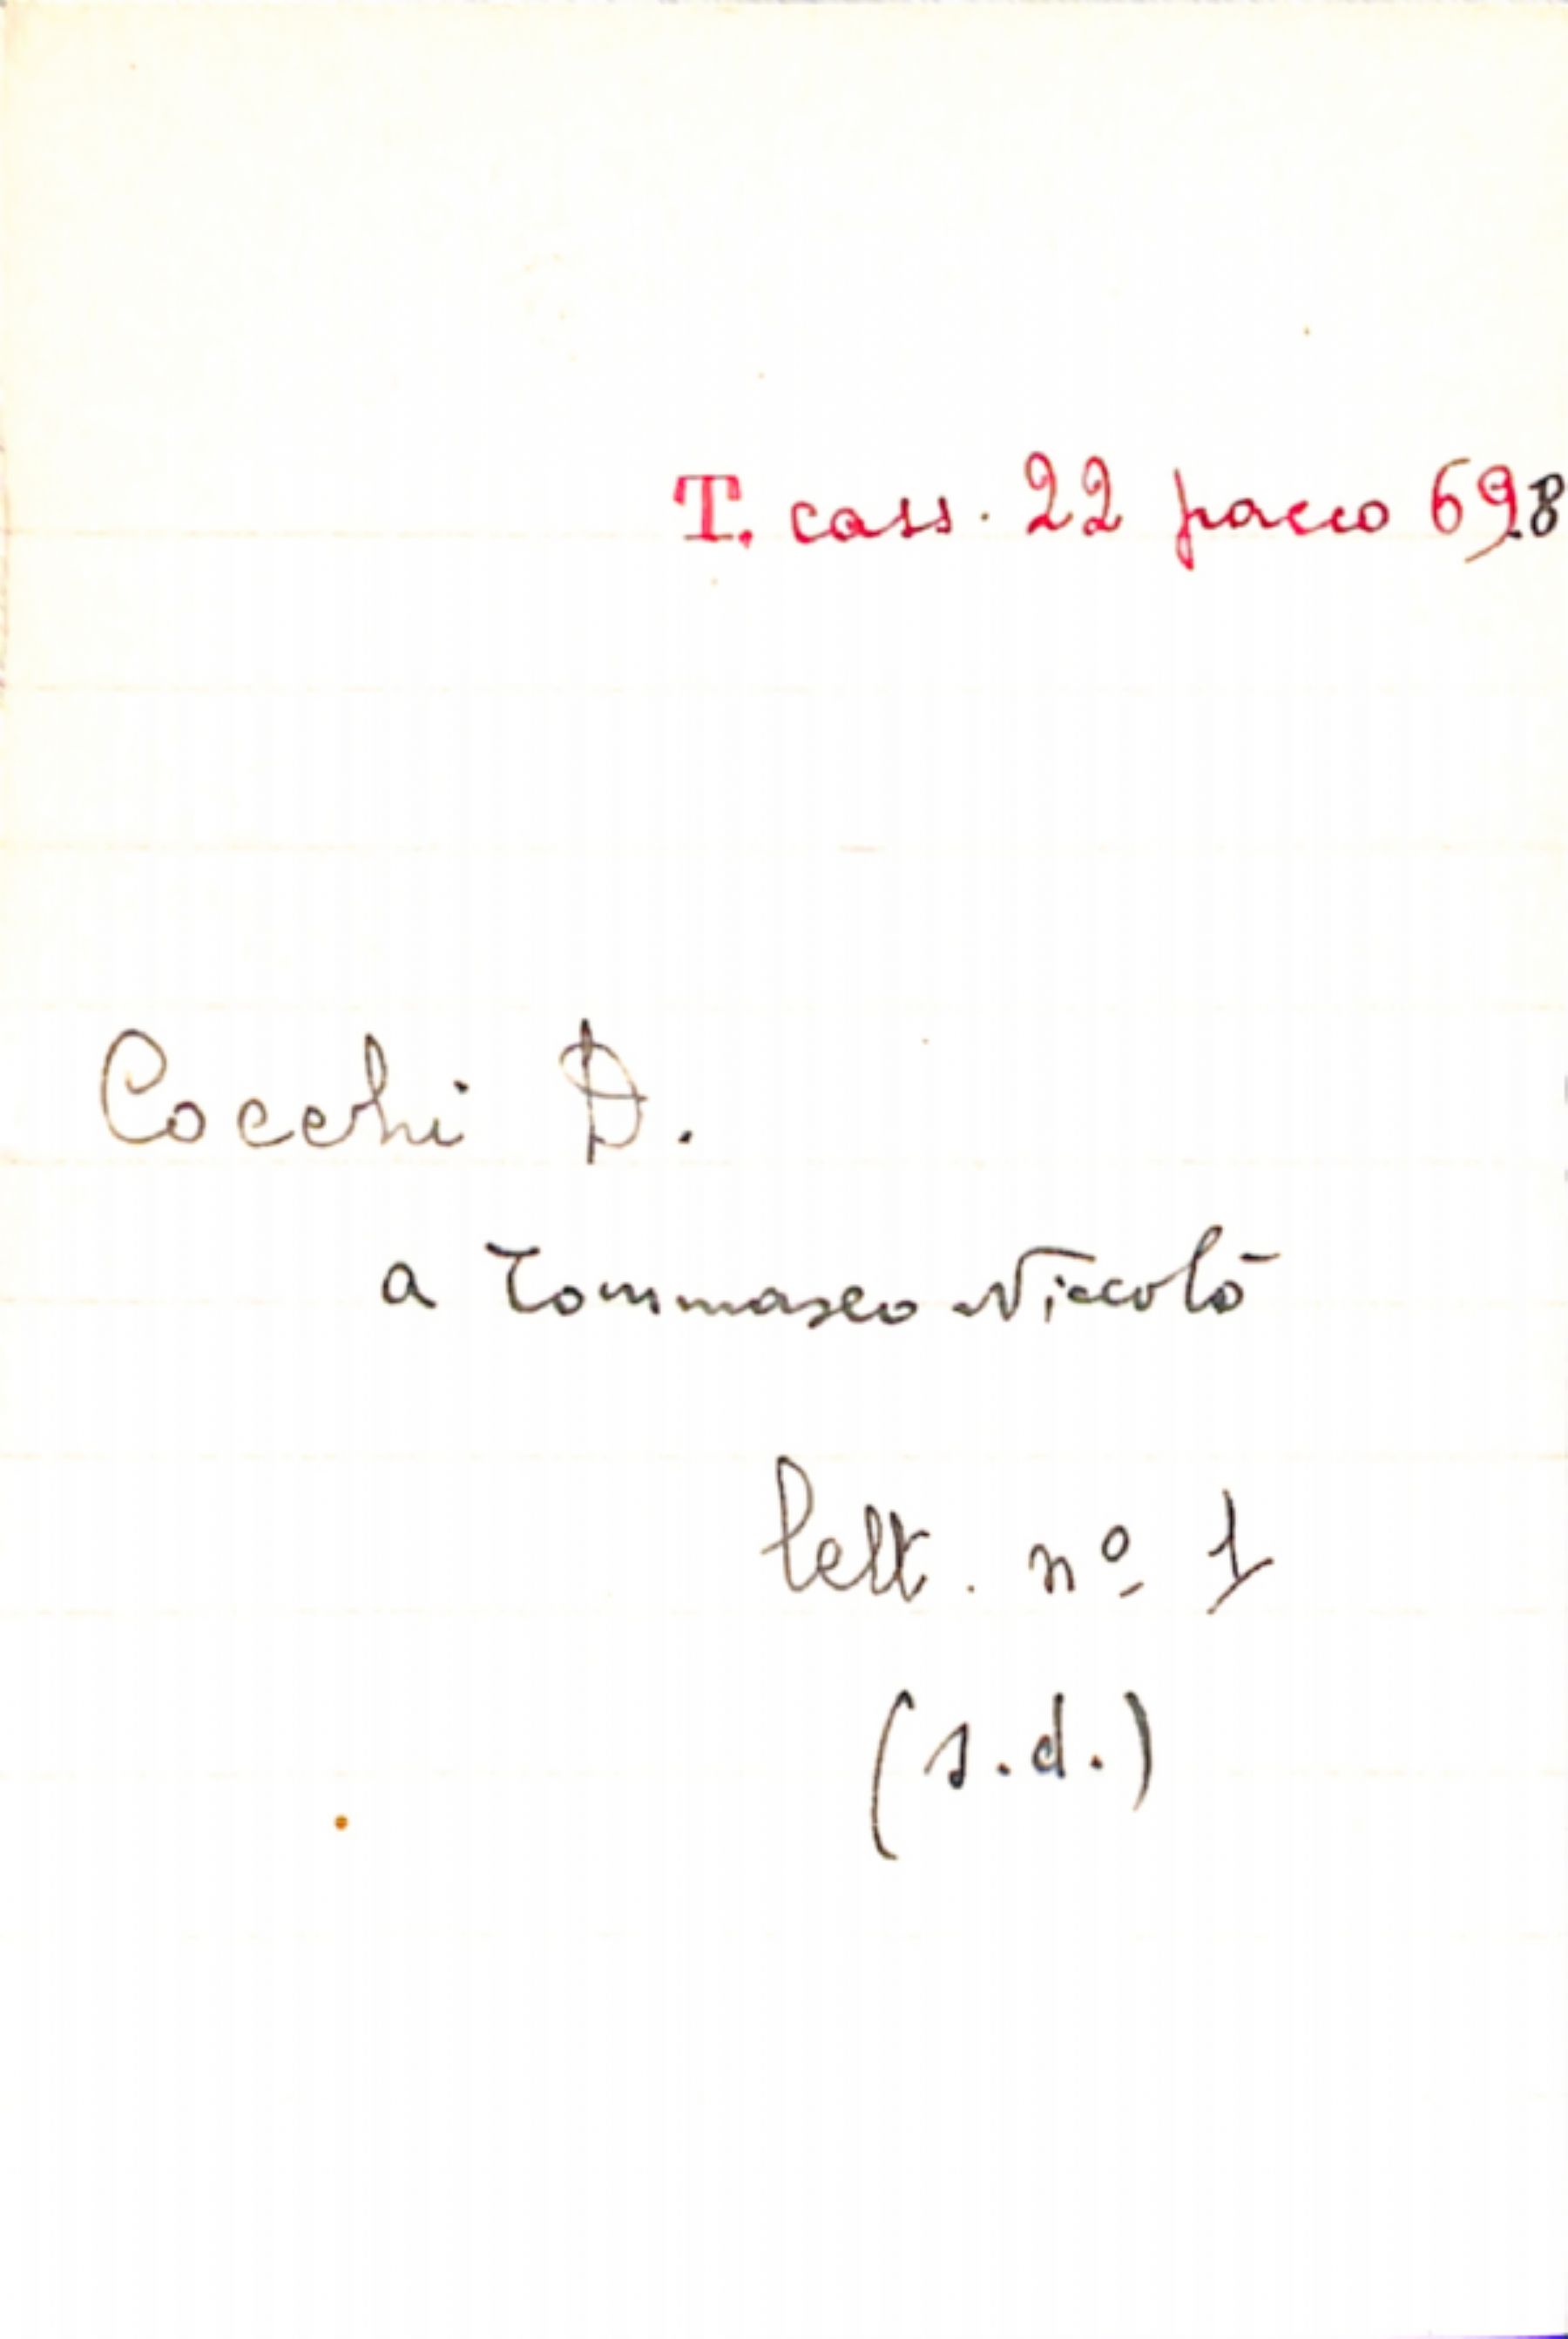 T. cass. 22 pacco 69.8
Cocchi D.
a Tommaseo Niccolò
lett. nº 1
(s.d.)